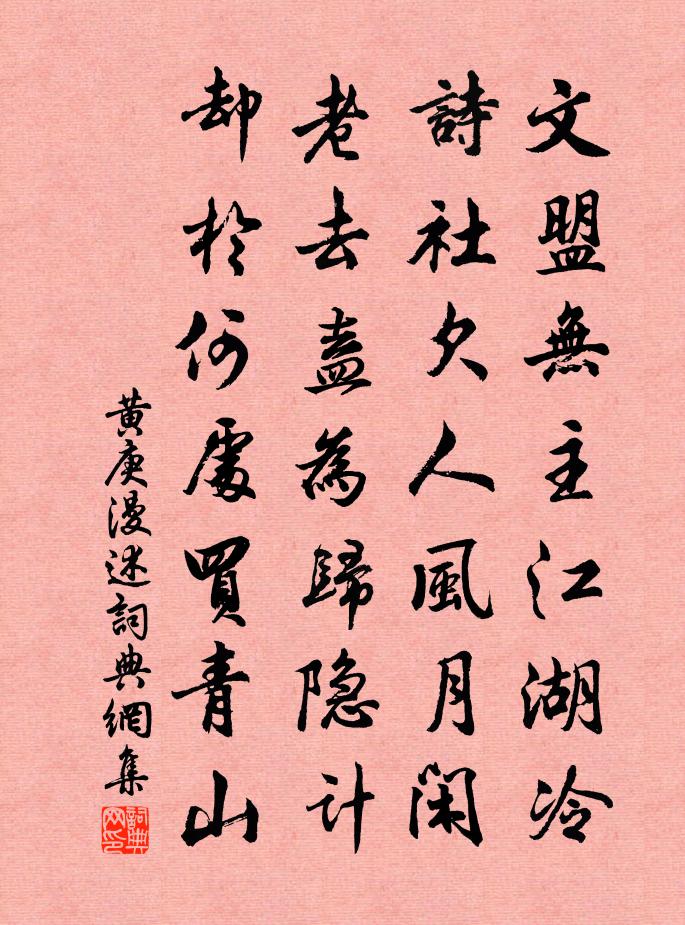 文盟無主江湖冷
詩社欠人風月閑
老去盍為歸隐计
却於何處買青山
黄庚漫述詞典網集
詞典网印